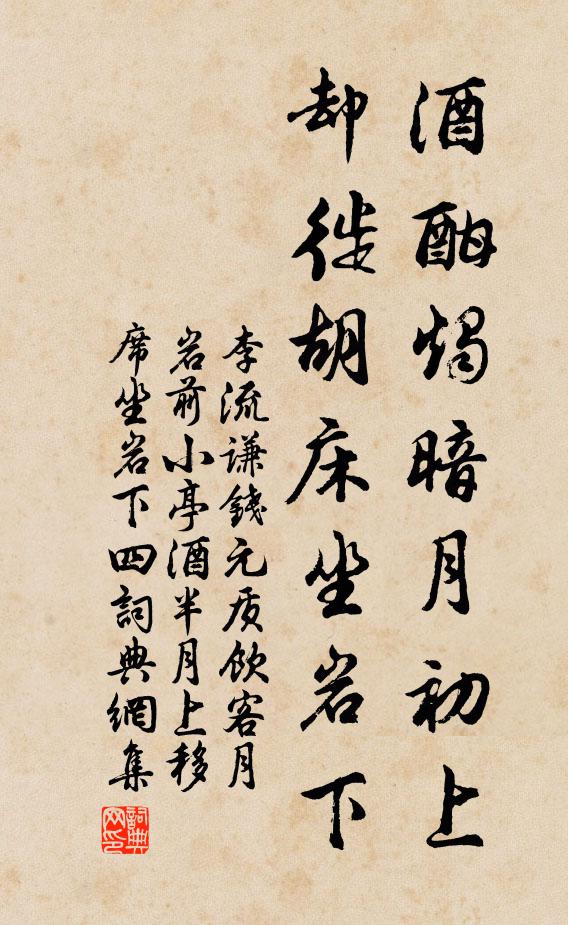 酒酣烛暗月初上
却徙胡床坐岩下
李流谦錢元质饮客月
岩前小亭酒半月上移
席坐岩下四詞典網集
詞典
网印